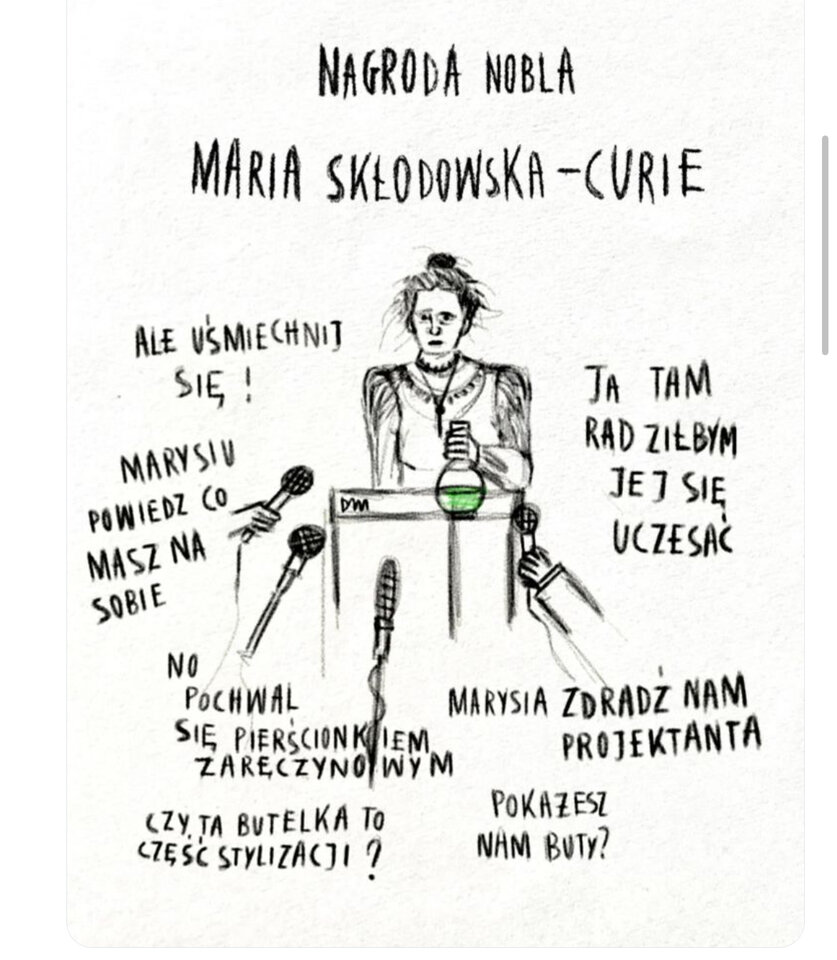 NAGRODA NOBLA
MARIA SKŁODOWSKA-CURIE
ALE UŚMIECHNIJ
SIĘ !
JA TAM
RADZIŁBYM
JEJ SIĘ
UCZESAĆ
MARYSIU
POWIEDZ CO
MASZ NA
SOBIE
DM
NO
POCHWAL
SIĘ PIERŚCIONKIEM
ZARĘCZYNOWYM
MARYSIA ZDRADŹ NAM
PROJEKTANTA
CZY TA BUTELKA TO
CZĘŚĆ STYLIZACJI ?
POKAŻESZ
NAM BUTY?